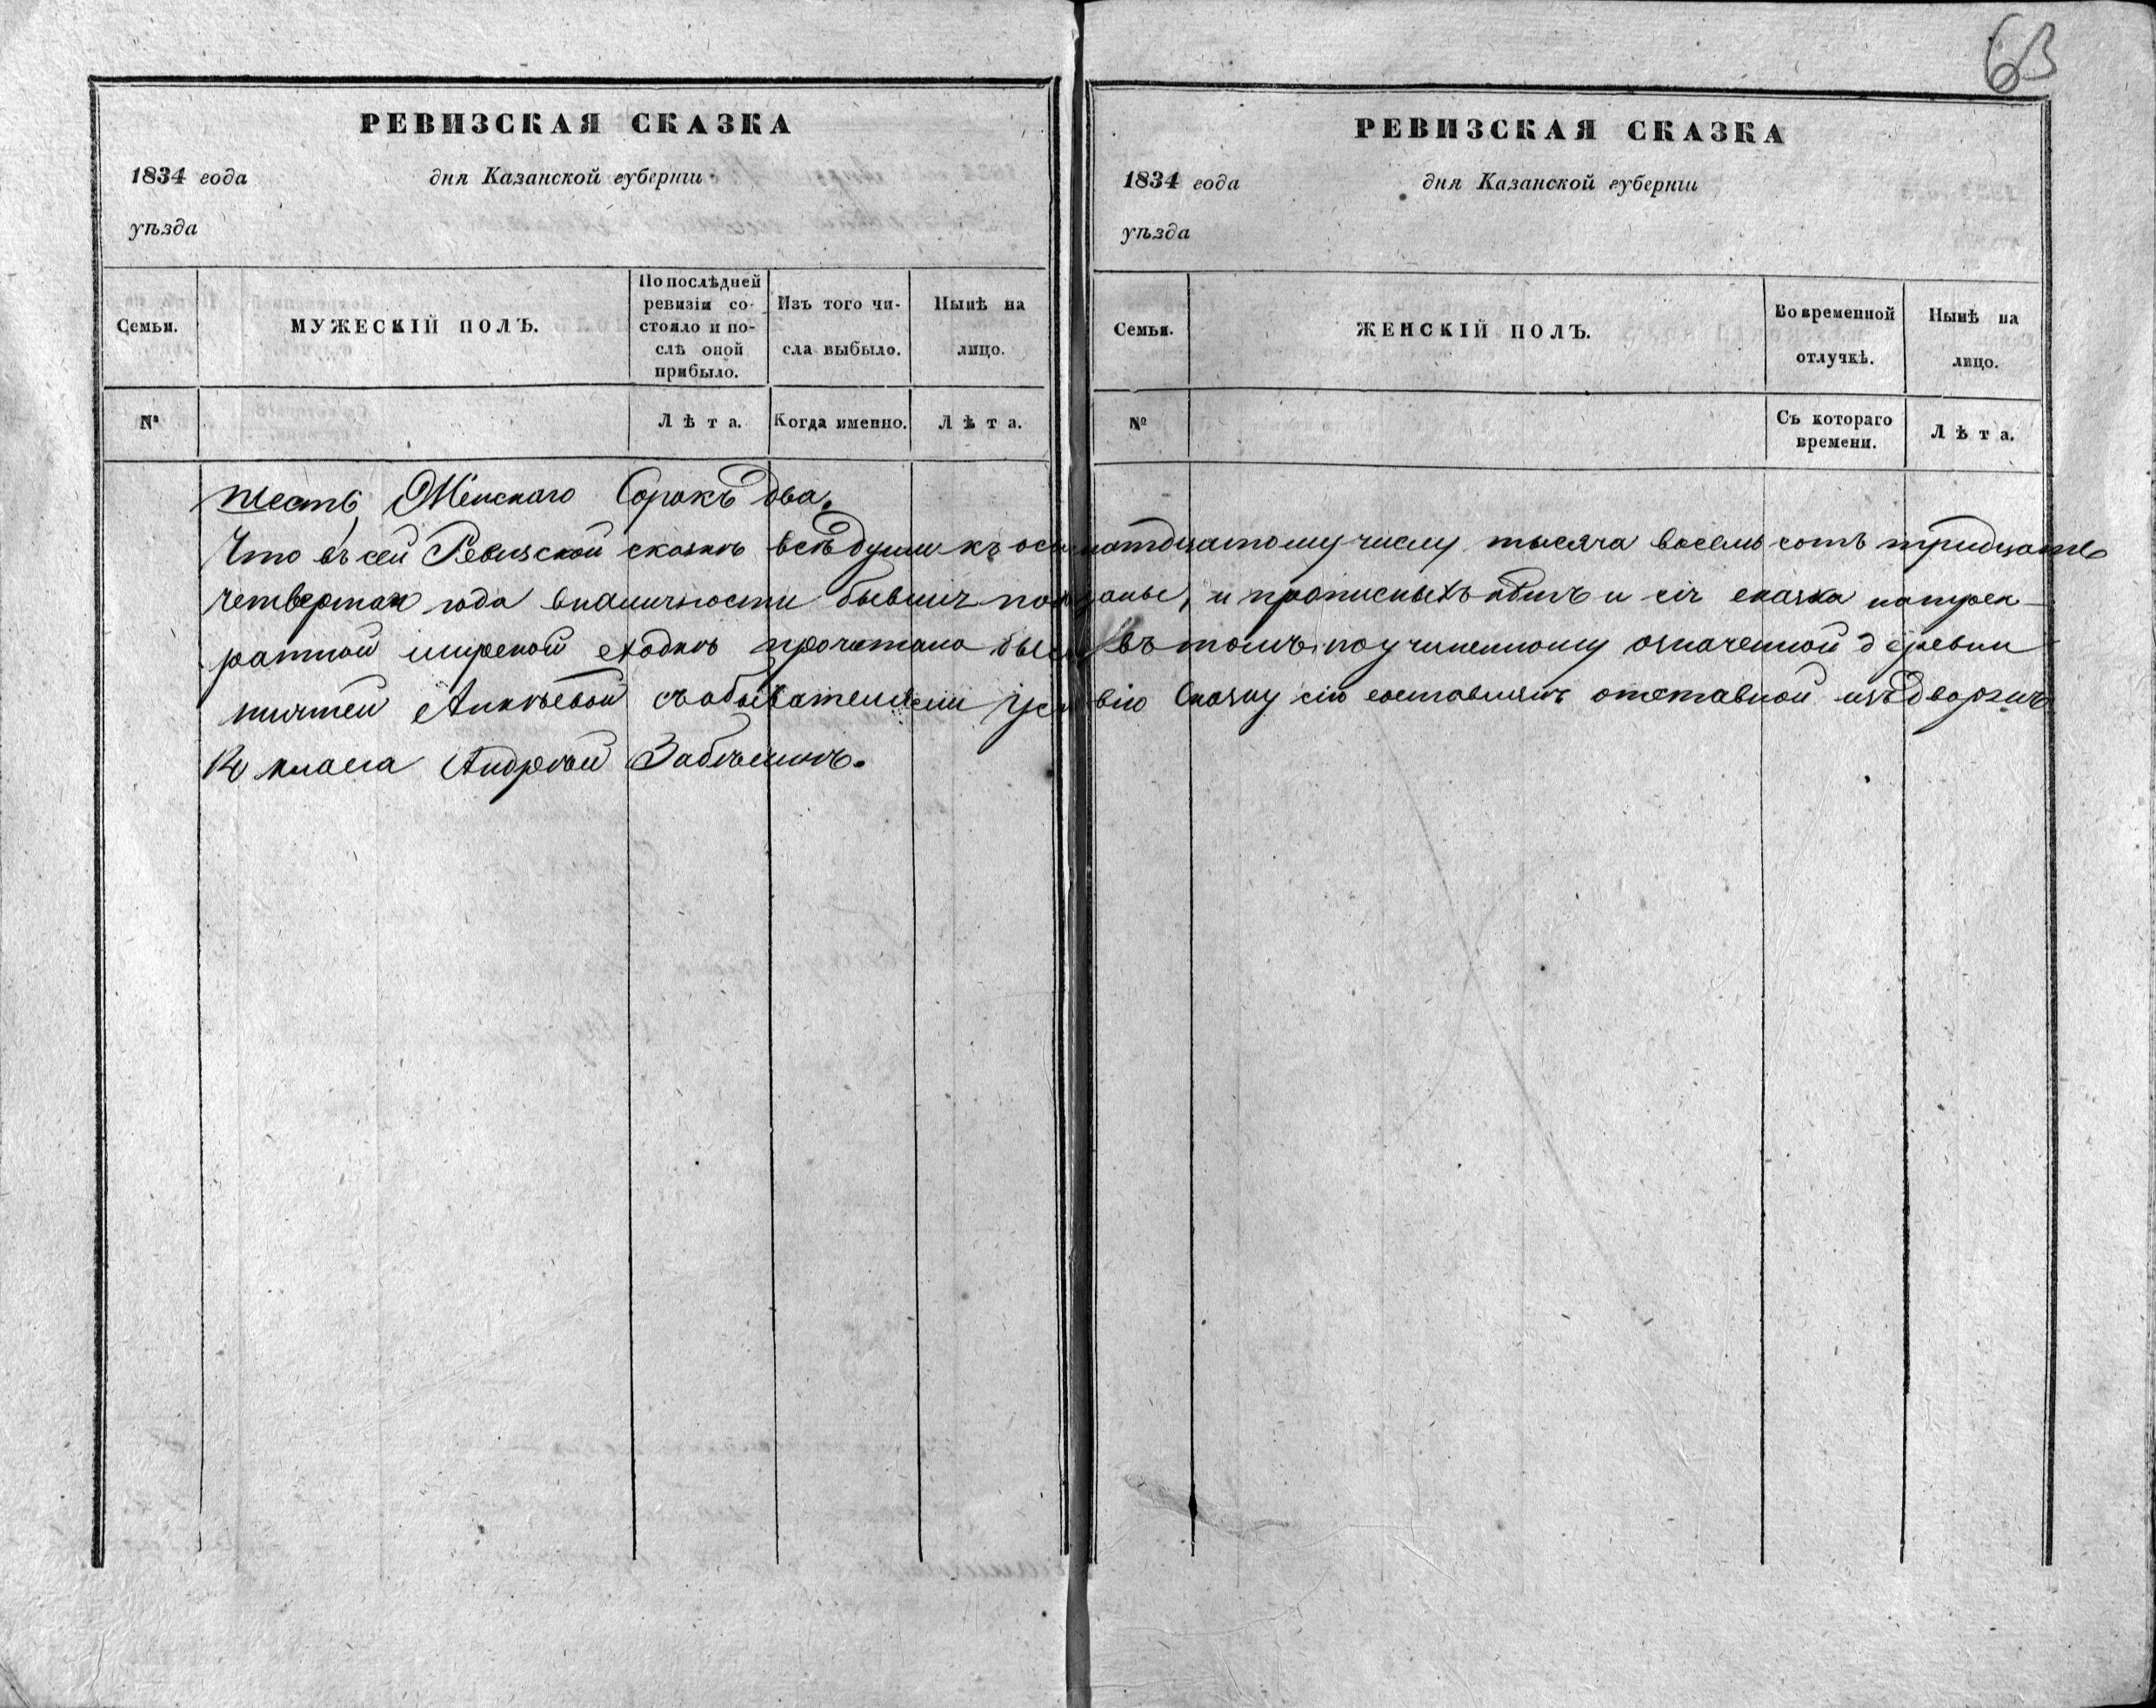 63
РЕВИЗСКАЯ СКАЗКА
1834 года дня Казанской губернiи
уѣзда
Семьи.
МУЖЕСКIЙ ПОЛЪ.
По послѣдней
ревизiи со-
стояло и по-
слѣ оной
прибыло.
Изъ того чи-
сла выбыло.
Нынѣ на
лицо.
№
Лѣта.
Когда именно.
Лѣта.
РЕВИЗСКАЯ СКАЗКА
1834 года дня Казанской губернiи
уѣзда
Семьи.
ЖЕНСКIЙ ПОЛЪ.
Во временной
отлучкѣ.
Нынѣ на
лицо.
№
Съ котораго
времени.
Лѣта.
шесть Женскаго Сорокъ два.
Что въ сей Ревизской сказкѣ всѣ души къ числу тысяча восемь сотъ тридцать
четвертаго года вналичности бывшiя показаны, и прописныхъ нѣтъ и сiя сказка натрек-
ратной мирской сходкѣ прочитана была въ томъ, по учиненному означенной деревни
съ обывателями условiю Сказку сiю составлялъ отставной изъ дворянъ
14 класса Андрей